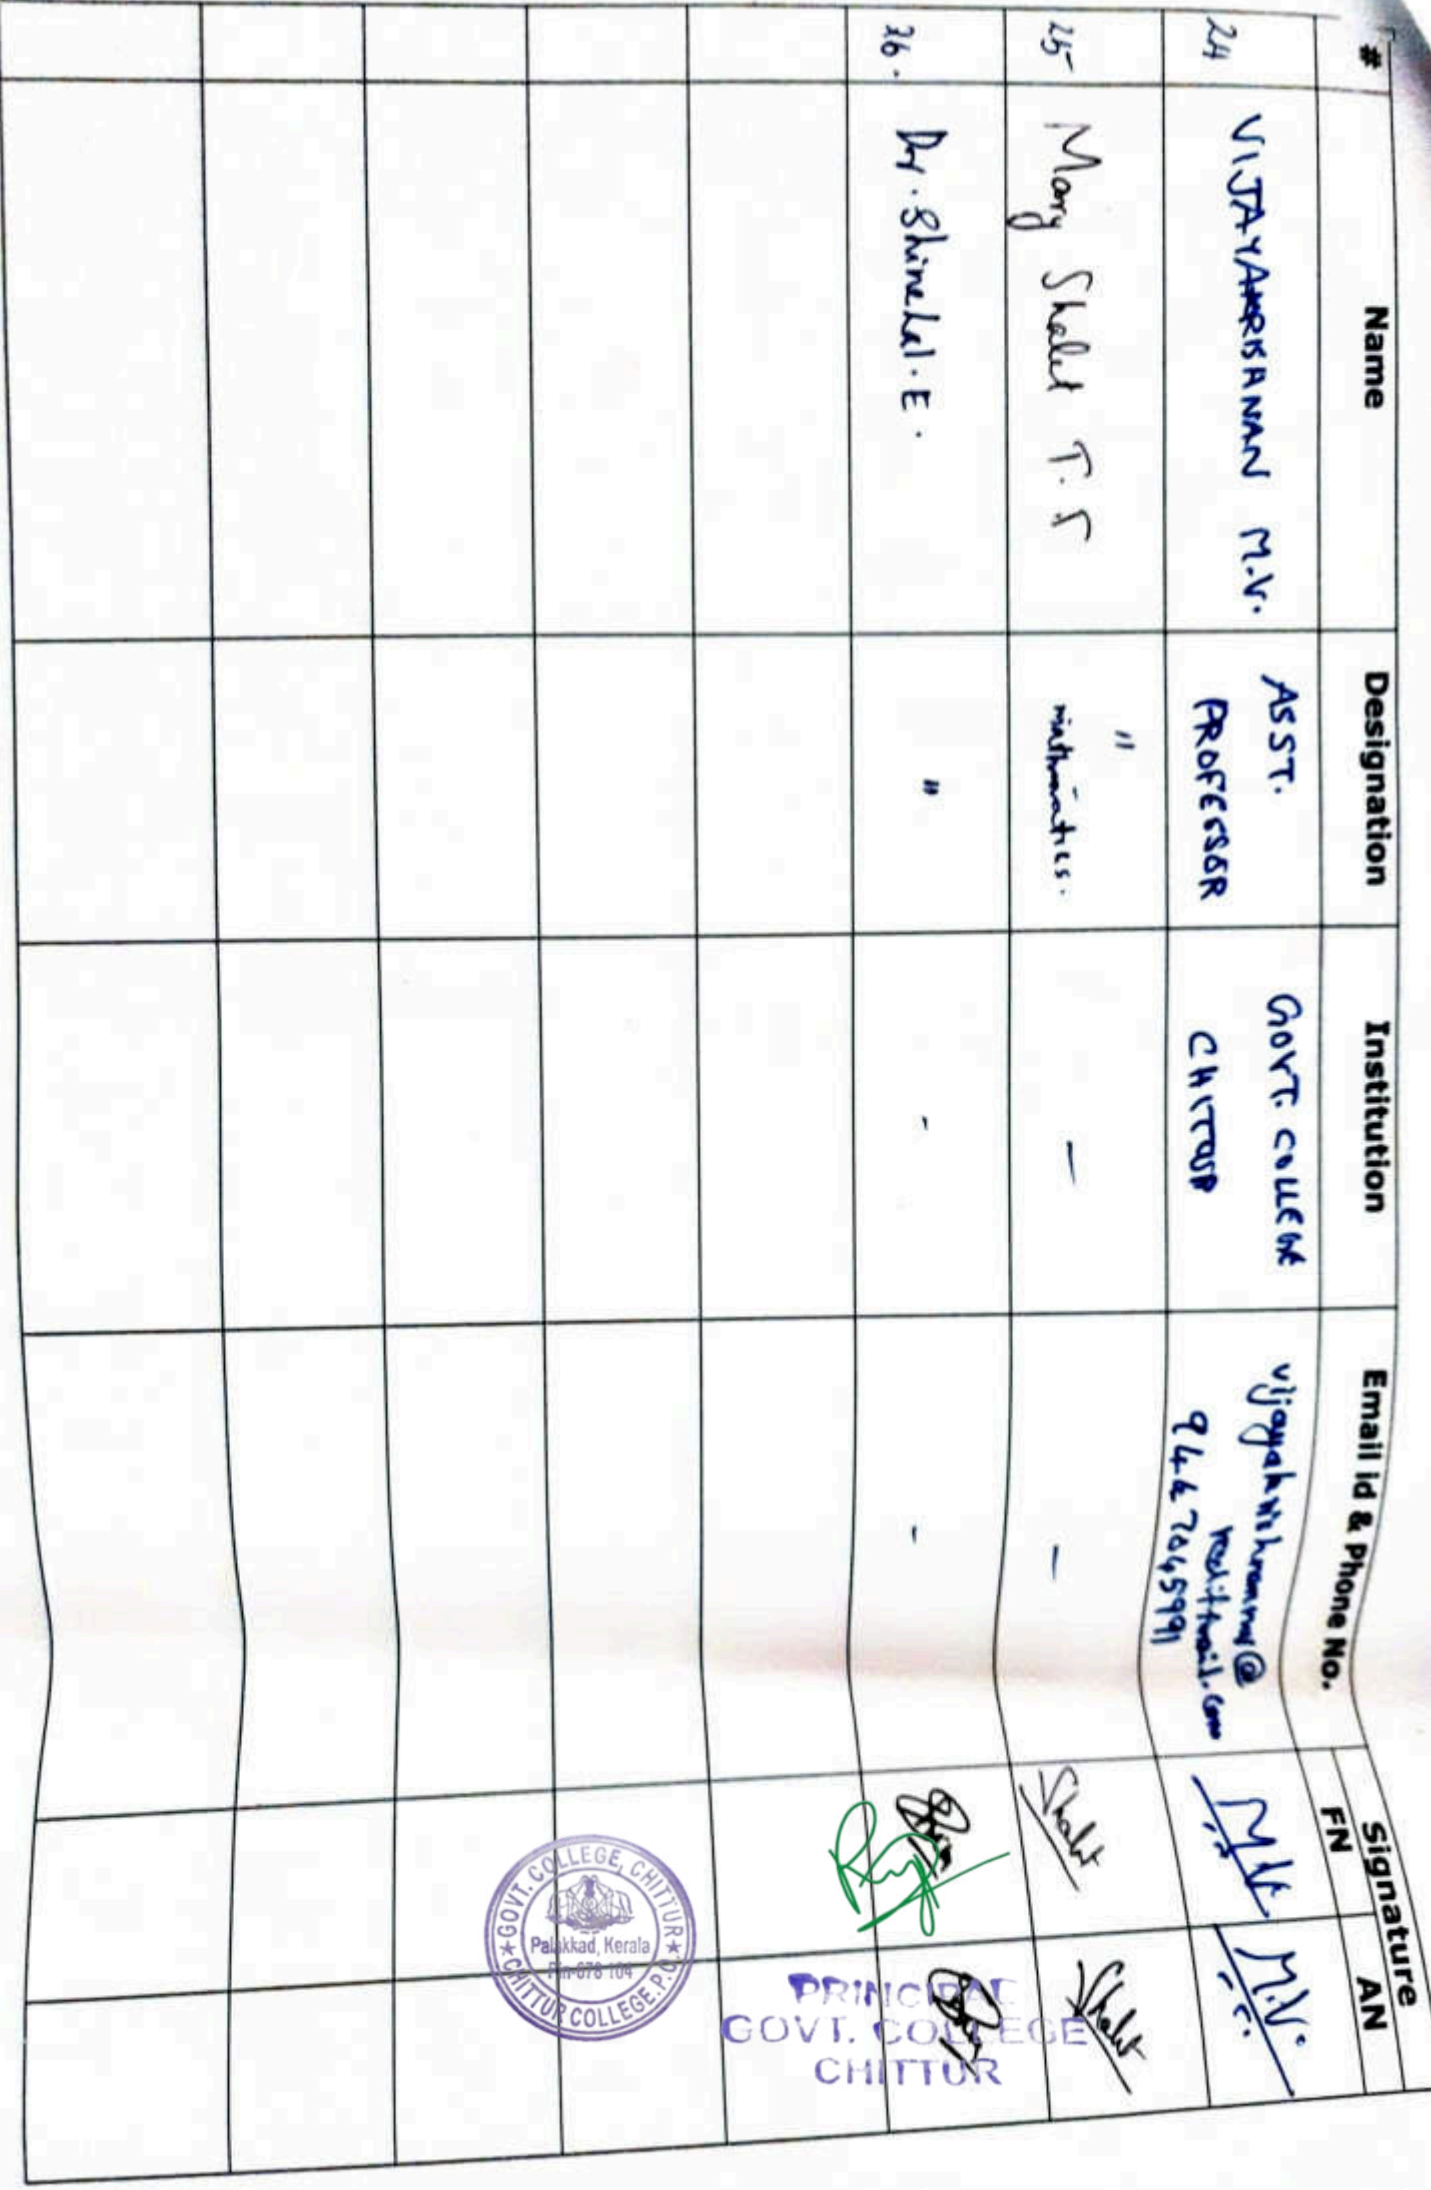 # Name Designation Institution Email id & Phone No. Signature
FN AN
24 VIJAYAKRISHANAN M.V. ASST. PROFESSOR GOVT. COLLEGE CHITTUR 9447045991 M.V. M.V.
25 Mary Shalet T. T " mathematics. — — Shalet Shalet
26. Dr. Shinelal. E. " - -
GOVT. COLLEGE, CHITTUR
Palakkad, Kerala
Pin-678 104
CHITTUR COLLEGE.P.O.
PRINCIPAL
GOVT. COLLEGE
CHITTUR